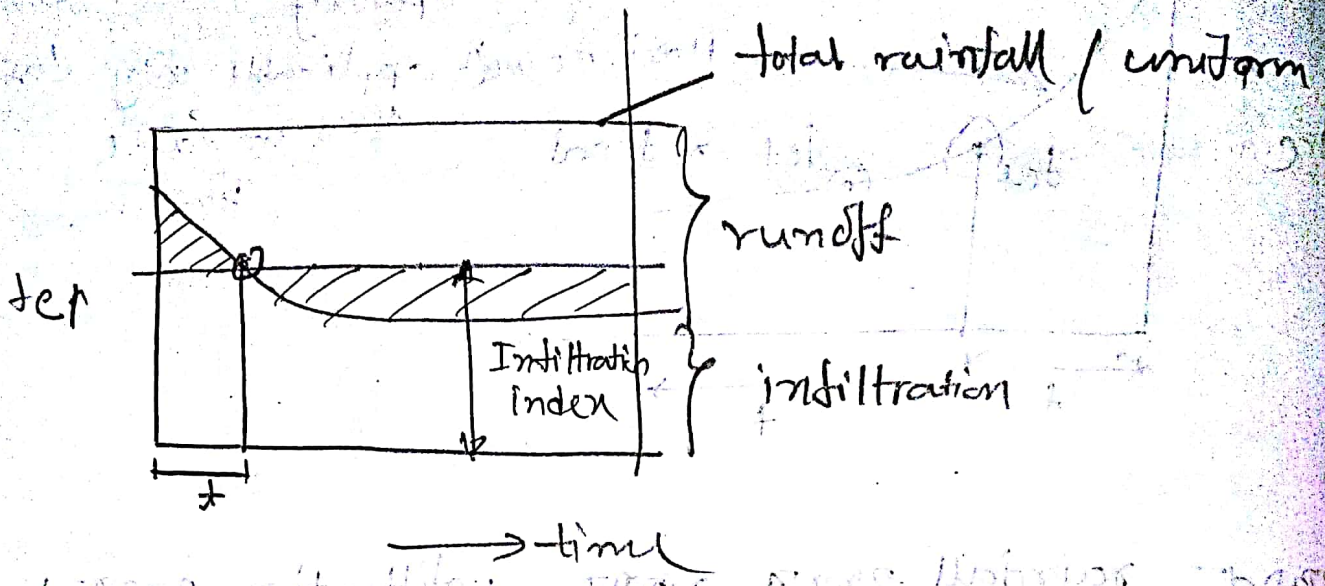 total rainfall / uniform
runoff
Infiltration
index
infiltration
t
time